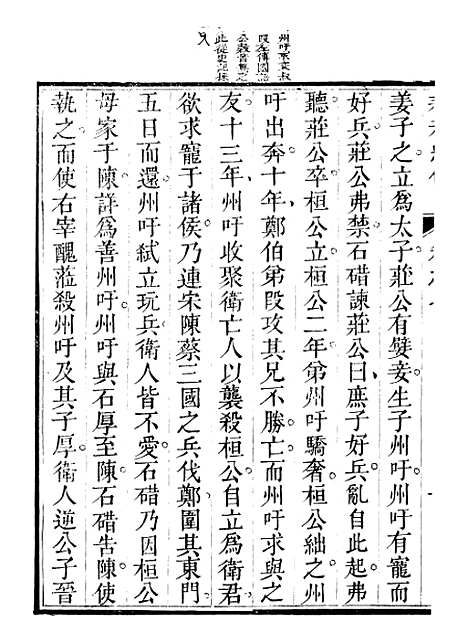 姜子之立爲太子莊公有嬖妾生子州吁州吁有寵而
好兵莊公弗禁石碏諫莊公曰庶子好兵亂自此起弗
聽莊公卒桓公立桓公二年第州吁驕奢桓公絀之州
吁出奔十年鄭伯第段攻其兄不勝亡而州吁求與之
友十三年州吁收聚衛亡人以襲殺桓公自立爲衛君
欲求寵于諸侯乃連宋陳蔡三國之兵伐鄭圍其東門
五日而還州吁弑立玩兵衛人皆不愛石碏乃因桓公
母家于陳詳爲善州吁州吁與石厚至陳石碏告陳使
執之而使右宰醜涖殺州吁及其子厚衛人逆公子晉